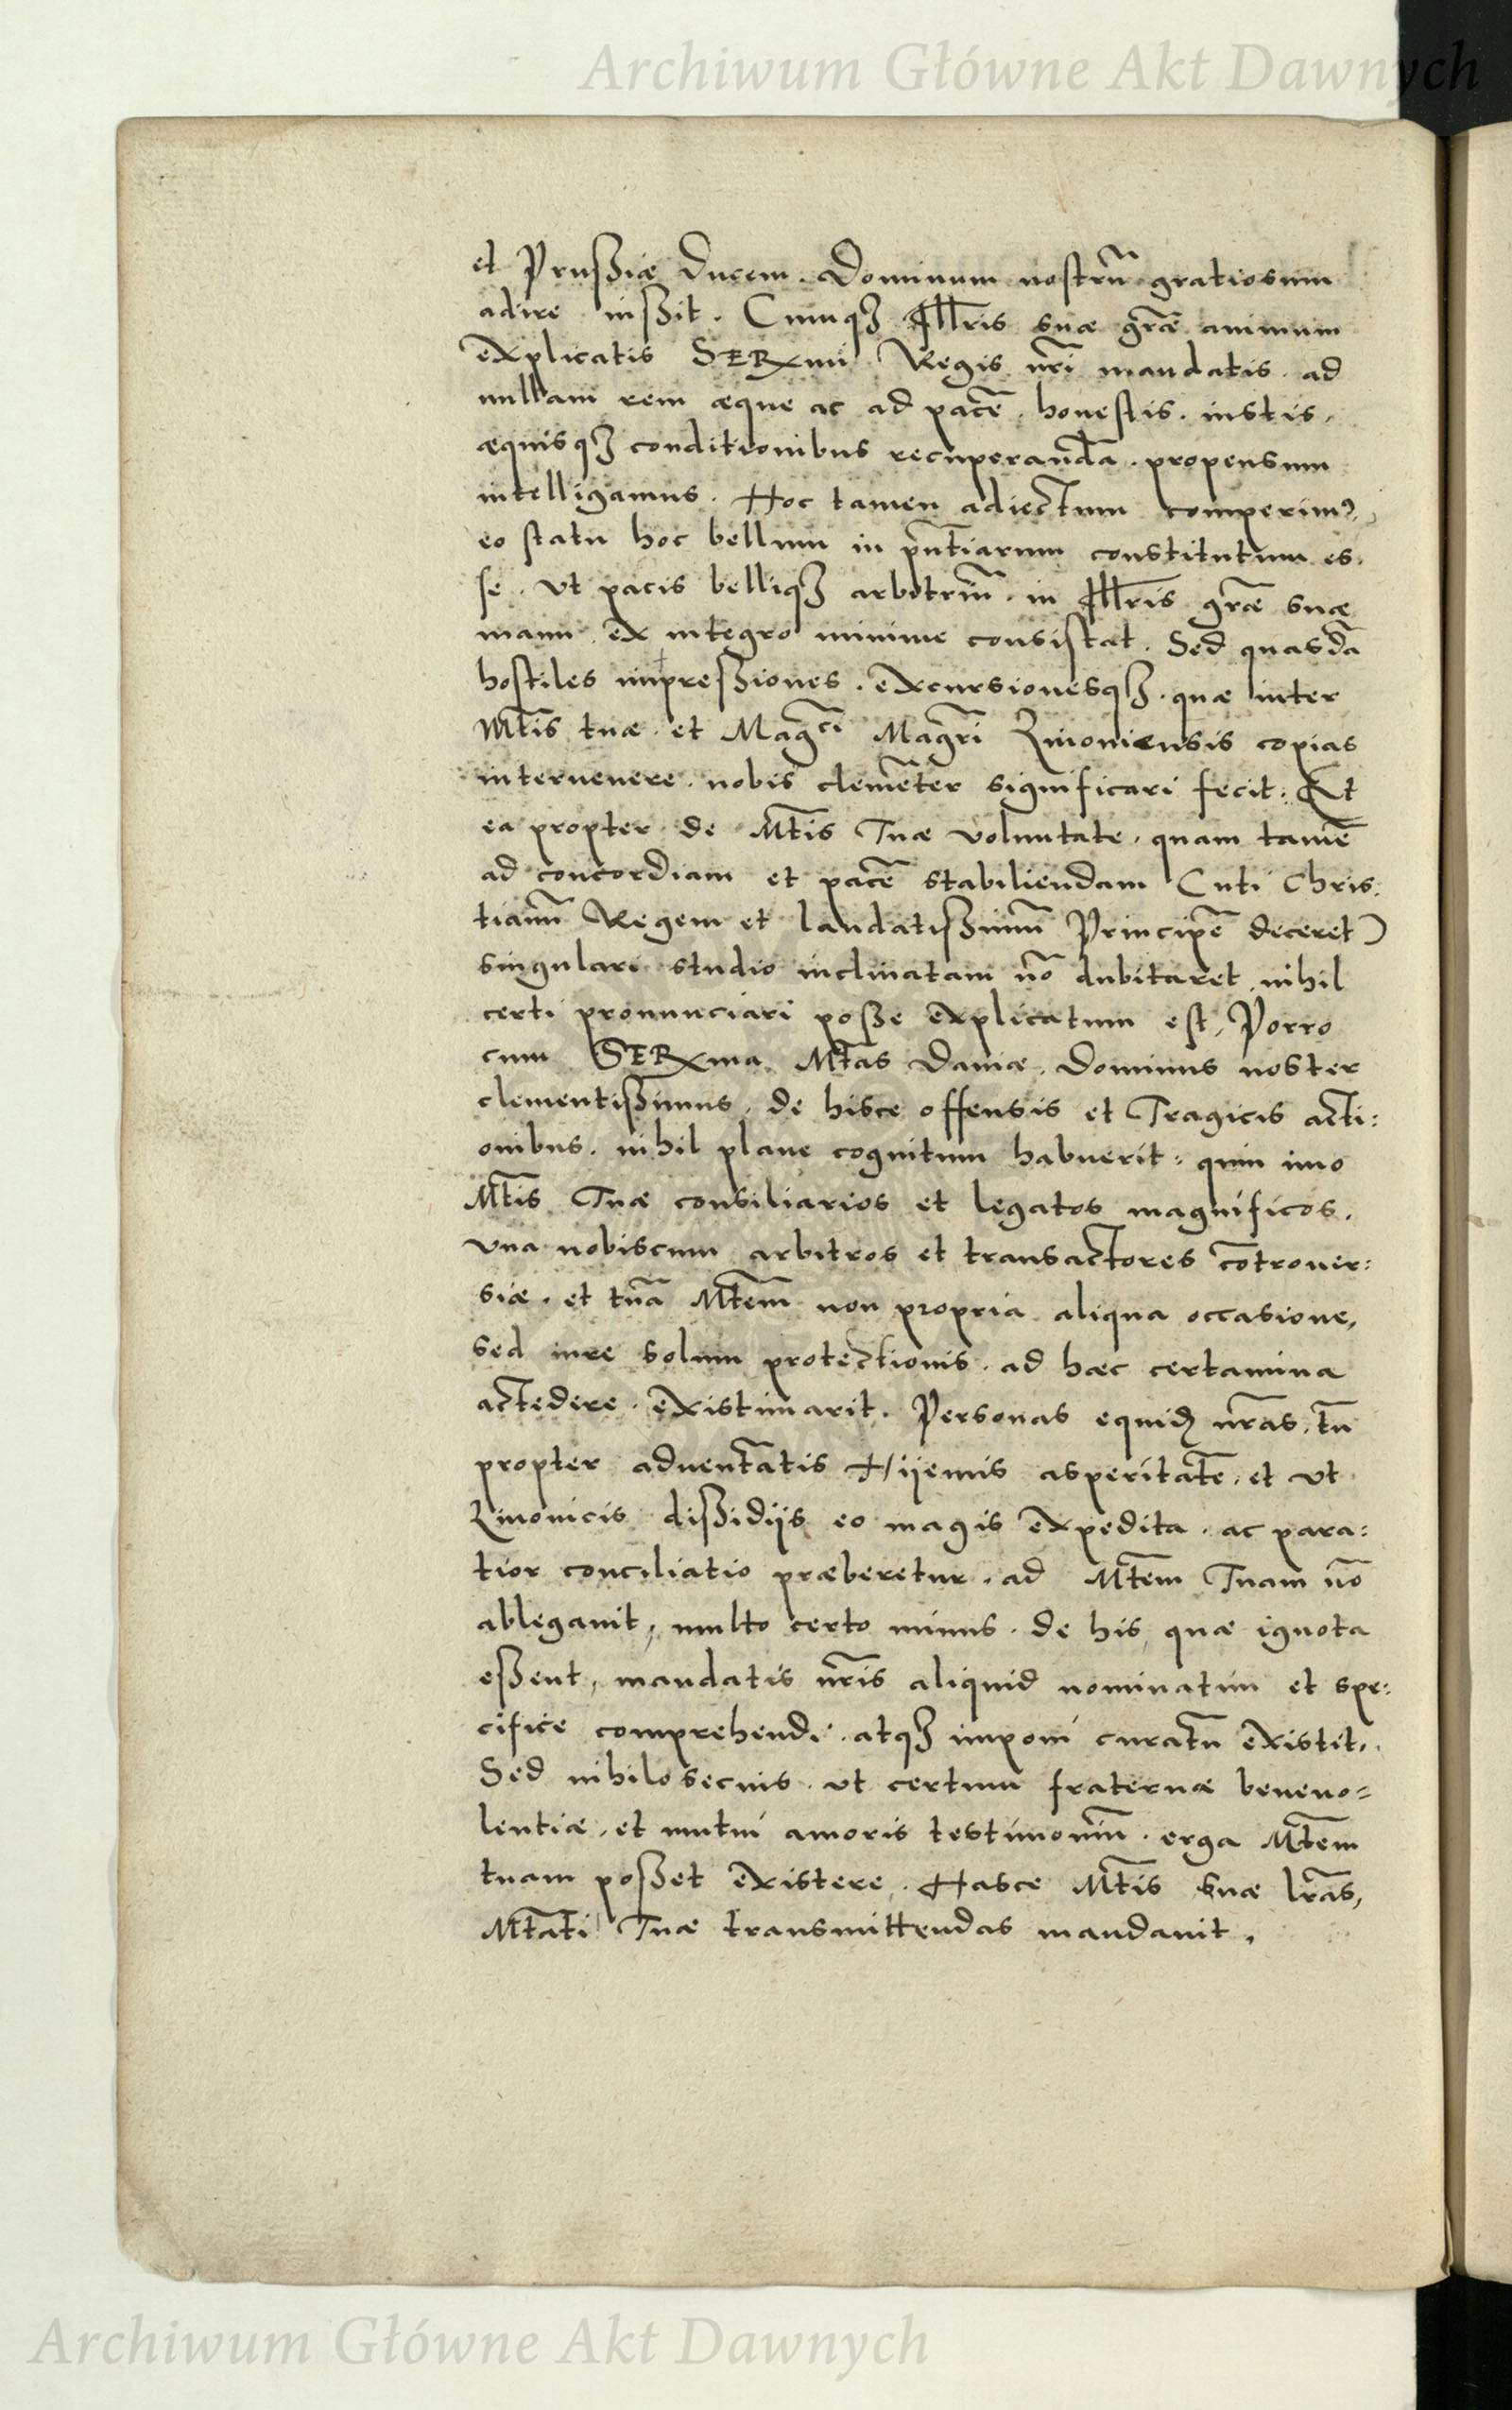 Archiwum Główne Akt Dawnych
et Prussiæ Ducem. Dominum nostrũ gratiosum
adire iussit. Cumqꝫ Illris suæ grãe animum
explicatis SERxmi Regis nr̃i mandatis. ad
nullam rem æque ac ad pacẽ. honestis. iustis,
æquisqꝫ conditionibus recuperandã. propensum
intelligamus. Hoc tamen adiectum comperimꝰ,
eo statu hoc bellum in pñtiarum constitutum es.
se. Ut pacis belliqꝫ arbitriũ. in Illris grãe suæ
manu ex integro minime consistat. Sed quasdã
hostiles impressiones. excursionesqꝫ. quæ inter
Mtis tuæ et Magci Magr̃i Liuoniensis copias
interuenere nobis clemẽter significari fecit. Et
ea propter de Mtis Tuæ voluntate, quam tamẽ
ad concordiam et pacẽ stabiliendam (uti Chris.
tianũ Regem et laudatissimũ Principẽ deceret)
singulari studio inclinatam nõ dubitaret, nihil
certi pronunciari posse explicatum est, Porro
cum SERxma Mtas Daniæ. Dominus noster
clementissimus, de hisce offensis et Tragicis acti:
onibus. nihil plane cognitum habuerit: quin imo
Mtis Tuæ consiliarios et legatos magnificos.
vna nobiscum arbitros et transactores cõtrouer:
siæ. et tuã Mtem non propria aliqua occasione,
sed iure solum protectionis. ad hæc certamina
accedere existimarit. Personas equidẽ nr̃as, tũ
propter aduentãtis Hijemis asperitatẽ. et ut
Liuonicis dissidijs eo magis expedita. ac para:
tior conciliatio præberetur. ad Mtem Tuam nõ
ablegauit, multo certo minus. de his quæ ignota
essent, mandatis nr̃is aliquid nominatim et spe:
cifice comprehendi. atqꝫ imponi curatũ existit,.
Sed nihilo secius. ut certum fraternæ beneuo=
lentiæ, et mutui amoris testimoniũ. erga Mtem
tuam posset existere. Hasce Mtis suæ lr̃as,
Mtati Tuæ transmittendas mandauit.
Archiwum Główne Akt Dawnych